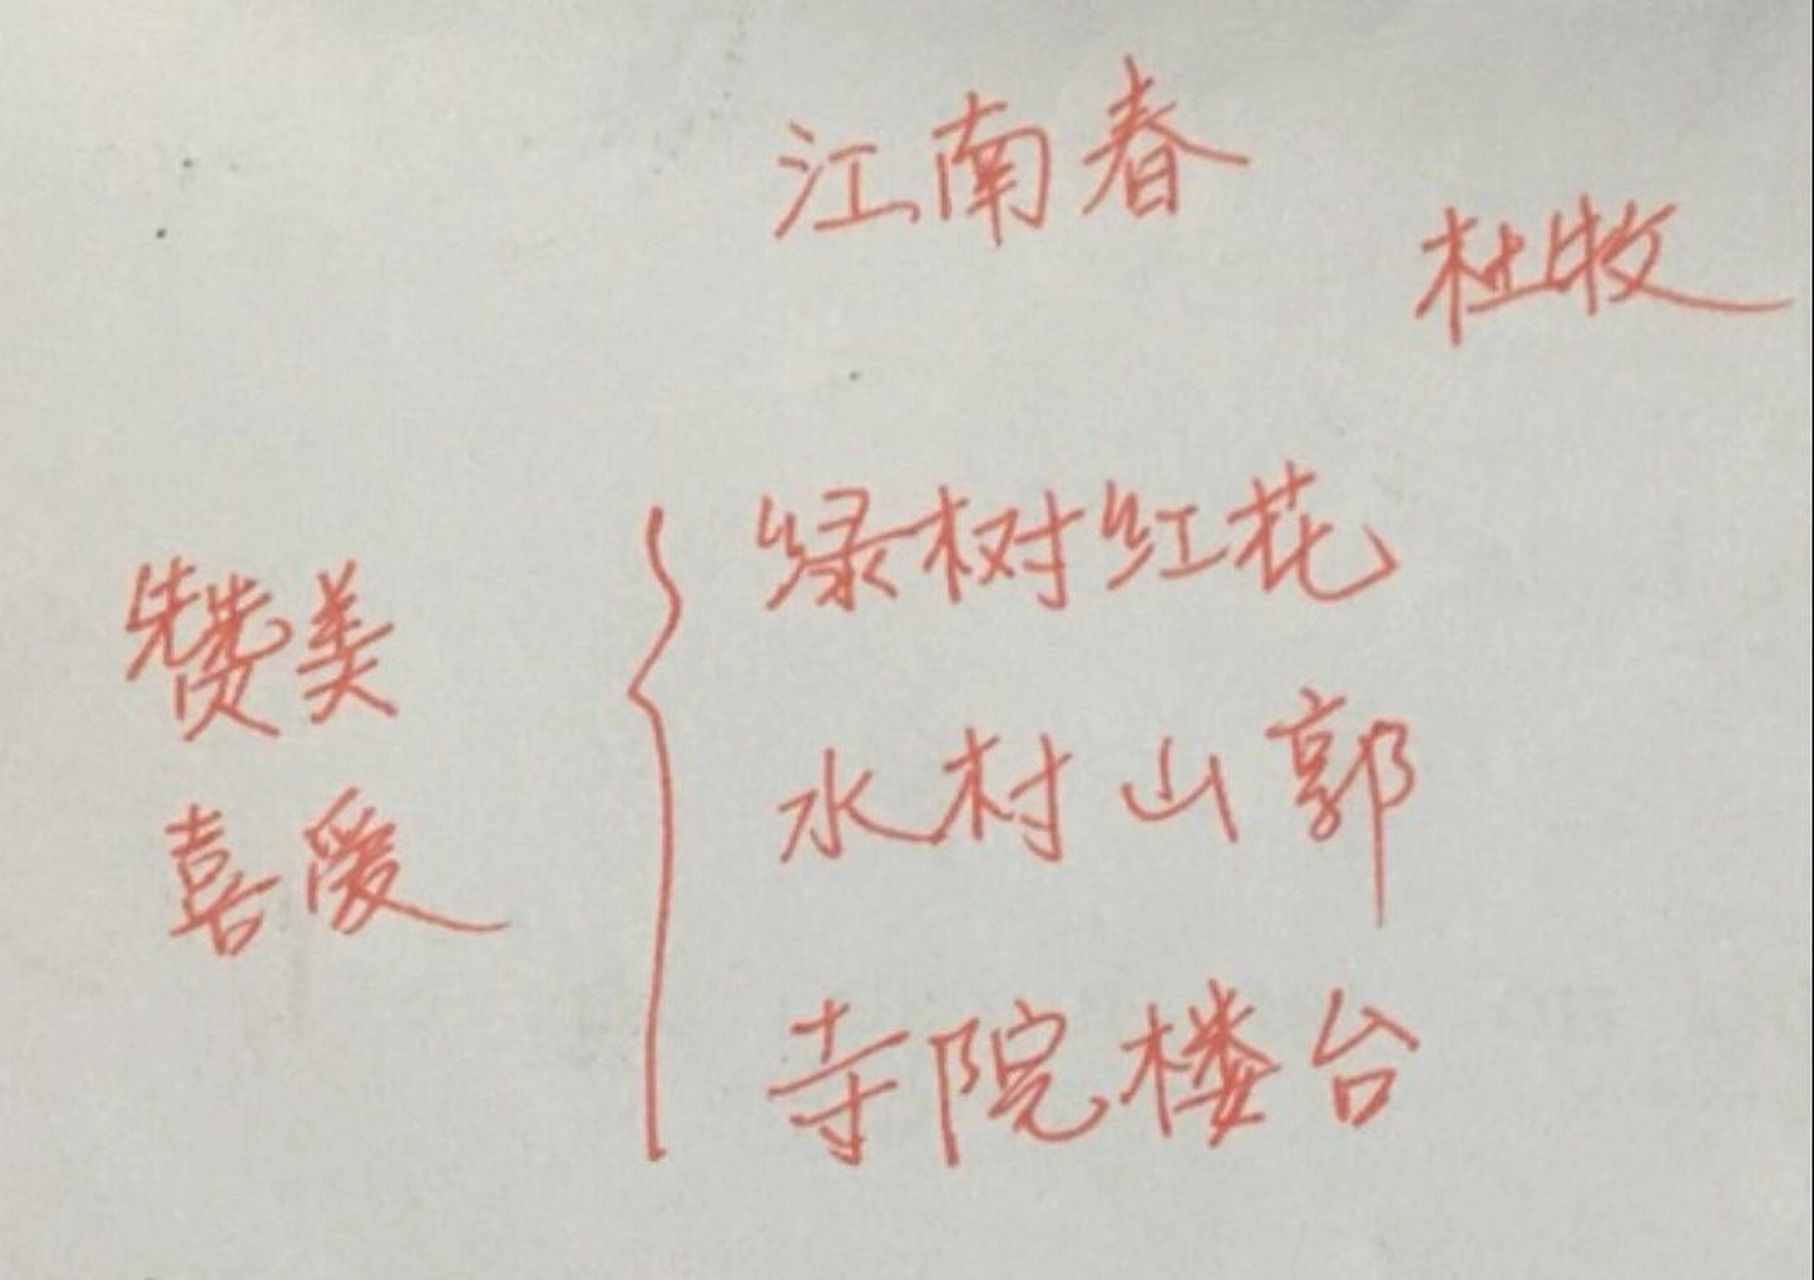 江南春
杜牧
赞美
喜爱
绿树红花
水村山郭
寺院楼台